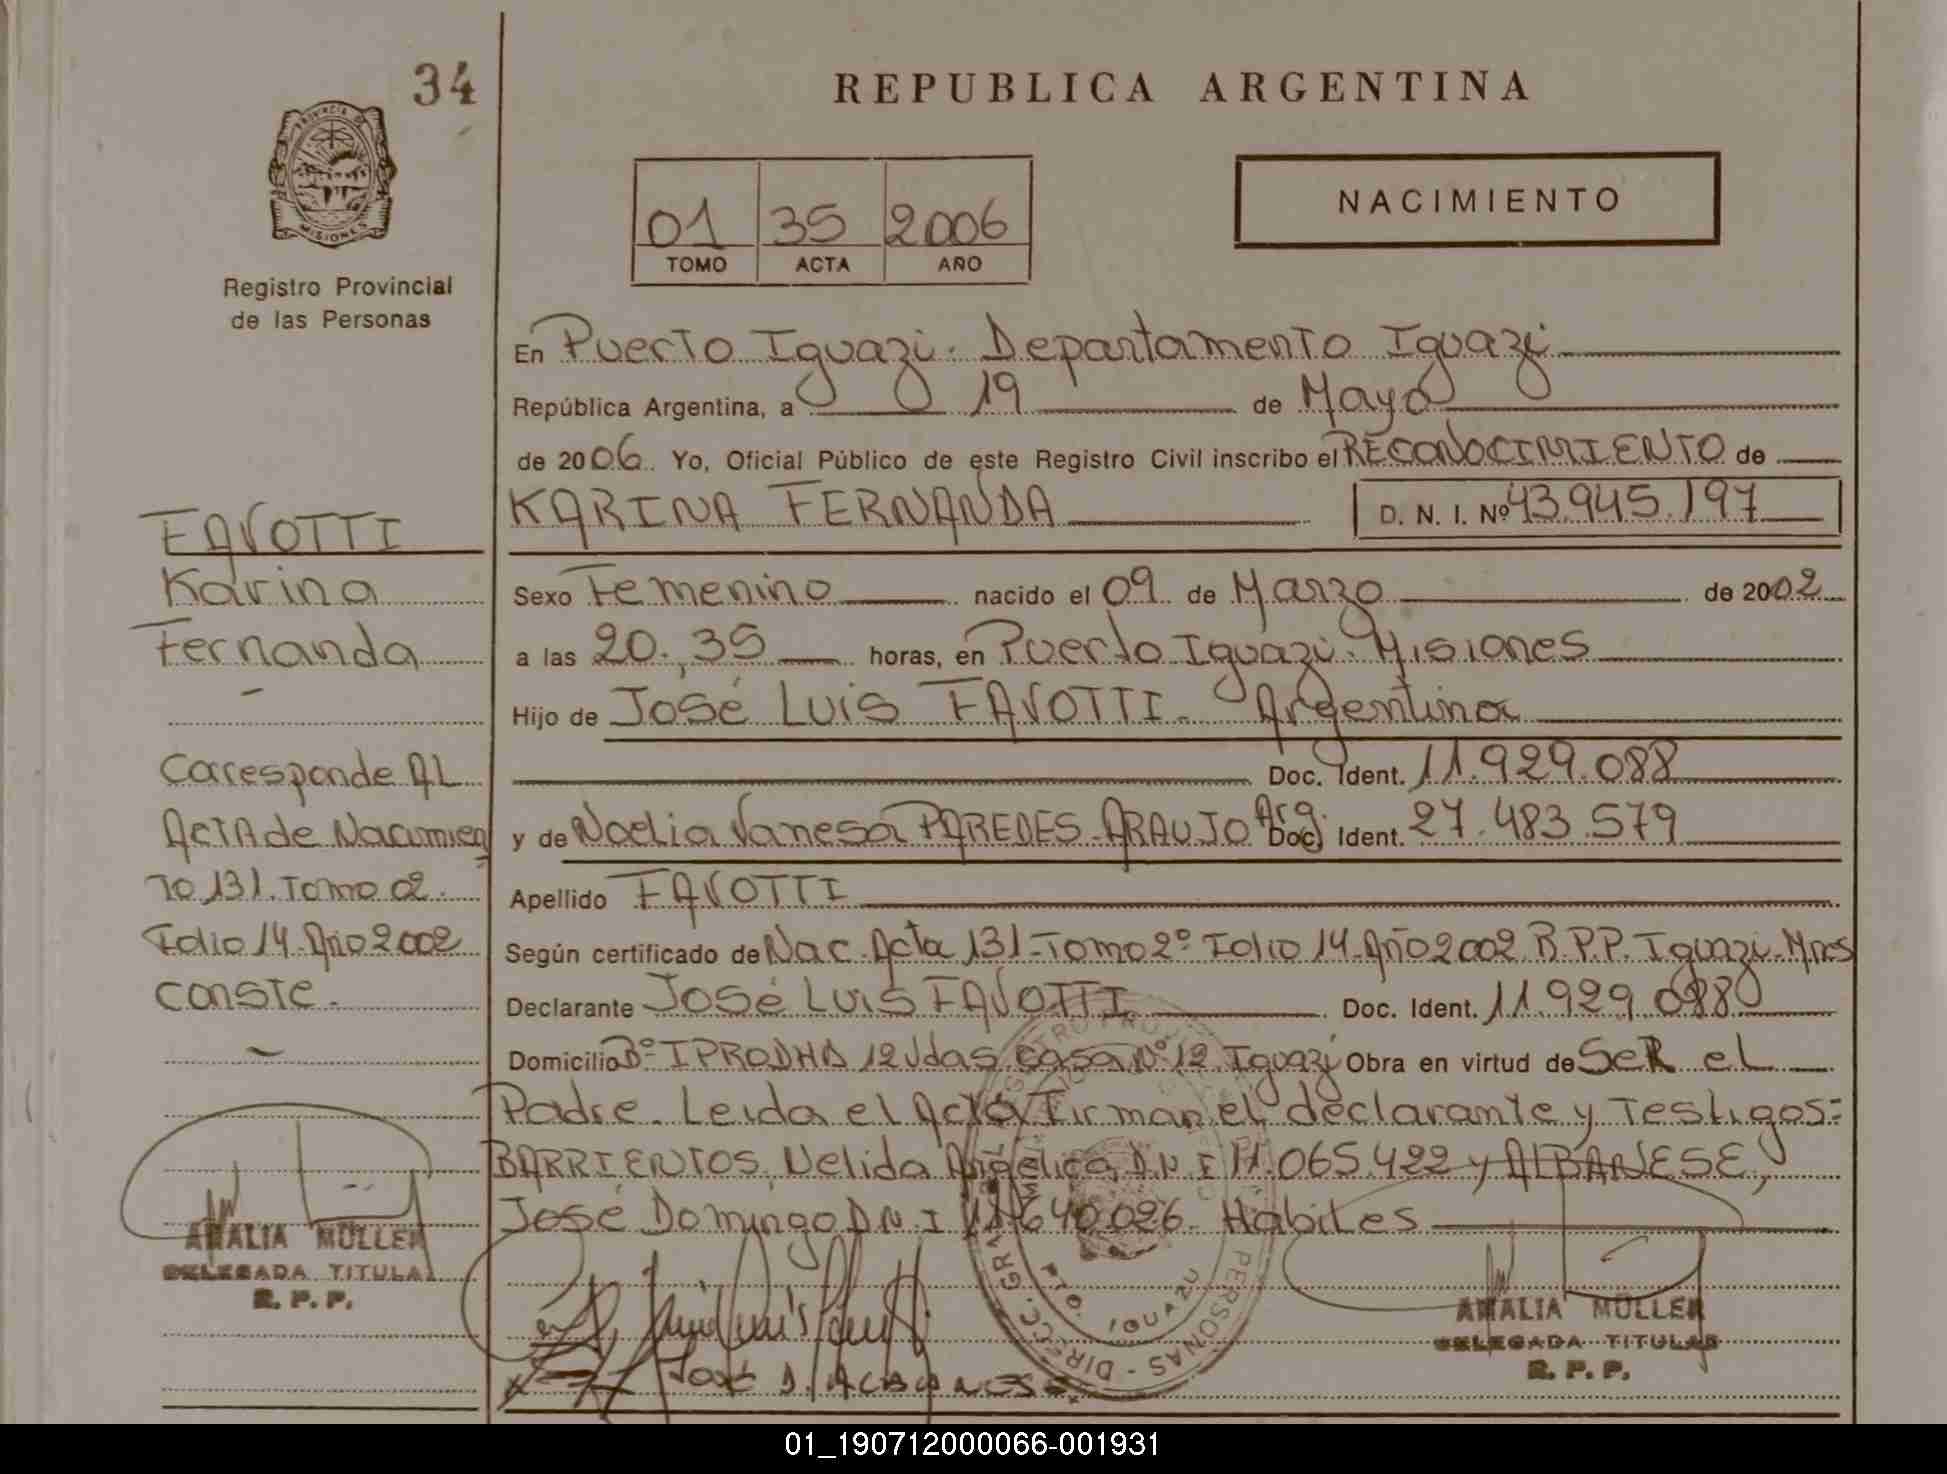 34
PROVINCIA DE
MISIONES
Registro Provincial
de las Personas
REPUBLICA ARGENTINA
01 35 2006
TOMO ACTA AÑO
NACIMIENTO
En Puerto Iguazú. Departamento Iguazú
República Argentina, a 19 de Mayo
de 2006. Yo, Oficial Público de este Registro Civil inscribo el RECONOCIMIENTO de
KARINA FERNANDA D. N. I. Nº 43.945.197
Sexo Femenino nacido el 09 de Marzo de 2002
a las 20,35 horas, en Puerto Iguazú. Misiones
Hijo de José Luis FAVOTTI. Argentina
Doc. Ident. 11.929.088
y de Noelia Vanesa PAREDES ARAUJO Arg. Doc. Ident. 27.483.579
Apellido FAVOTTI
Según certificado de Nac. Acta 131-Tomo 2º Folio 14-Año 2002 R.P.P. Iguazú-Mnes
Declarante José Luis FAVOTTI Doc. Ident. 11.929.088
Domicilio Bº IPRODHA 12 Vdas casa Nº 12 Iguazú Obra en virtud de SER el
Padre. Leida el Acta Firman el declarante y Testigos:
BARRIENTOS, Nelida Angelica, D.N.I 11.065.422 y ALBANESE,
José Domingo D.N.I 11.640.026. Habiles
FAVOTTI
Karina
Fernanda
Corresponde AL
ACTA de Nacimien
To 131. Tomo 02.
Folio 14-Año 2002
CONSTE.
AMALIA MÜLLER
DELEGADA TITULAR
R. P. P.
José D. ALBANESE
AMALIA MÜLLER
DELEGADA TITULAR
R. P. P.
01_190712000066-001931